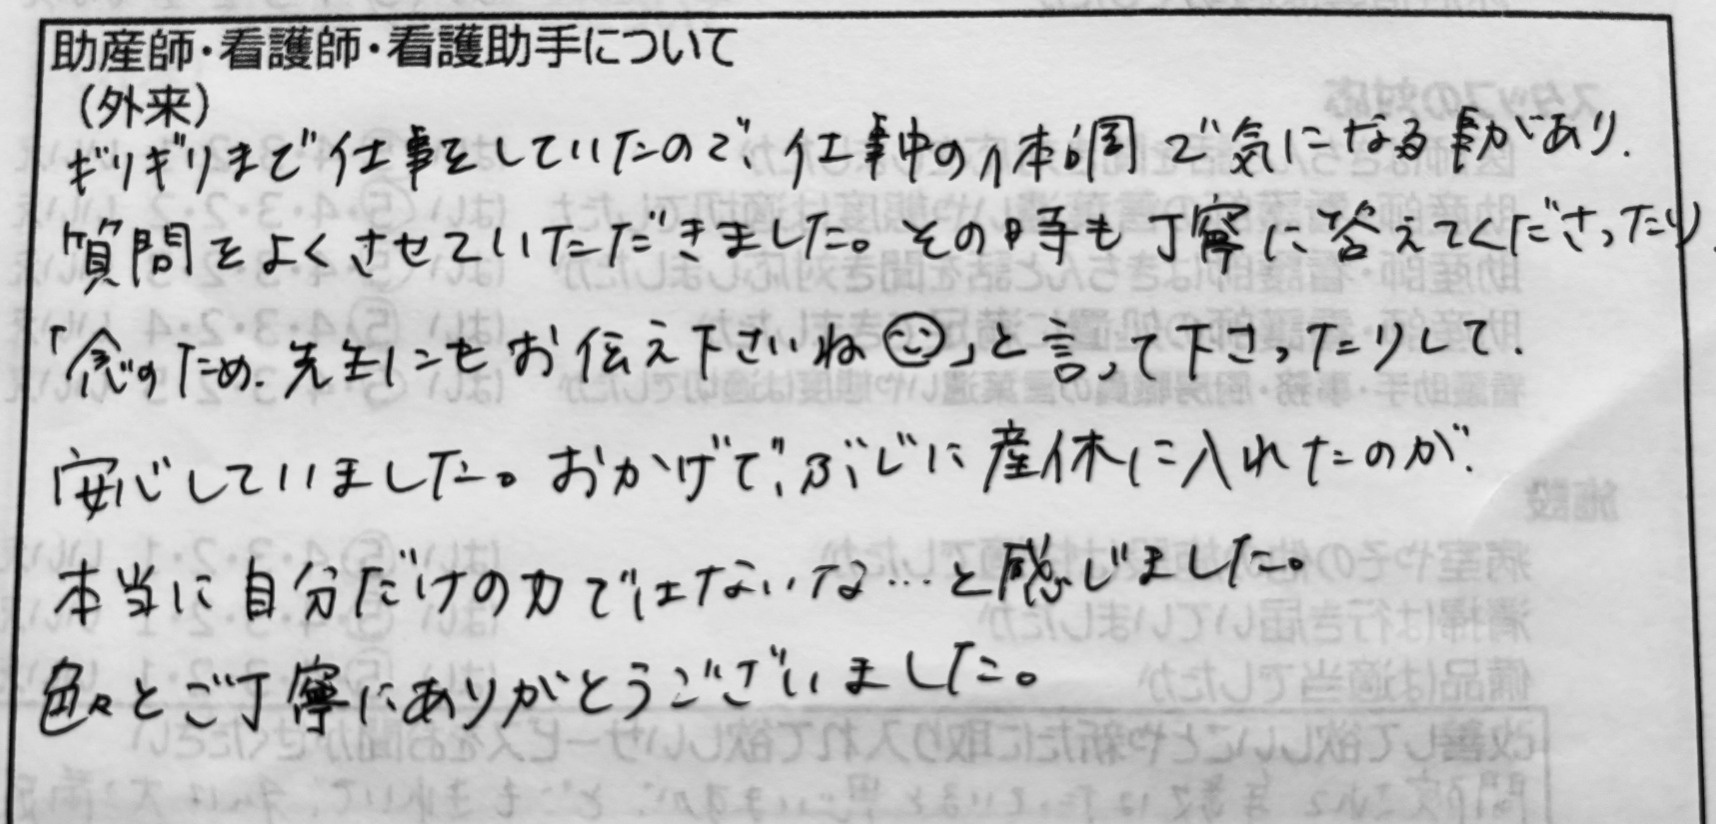 助産師・看護師・看護助手について
(外来)
ギリギリまで仕事をしていたので、仕事中の体調で気になる事があり、
質問をよくさせていただきました。その時も丁寧に答えてくださったり、
「念のため、先生にもお伝え下さいね☺」と言って下さったりして、
安心していました。おかげで、ぶじに産休に入れたのが、
本当に自分だけの力ではないな…と感じました。
色々とご丁寧にありがとうございました。